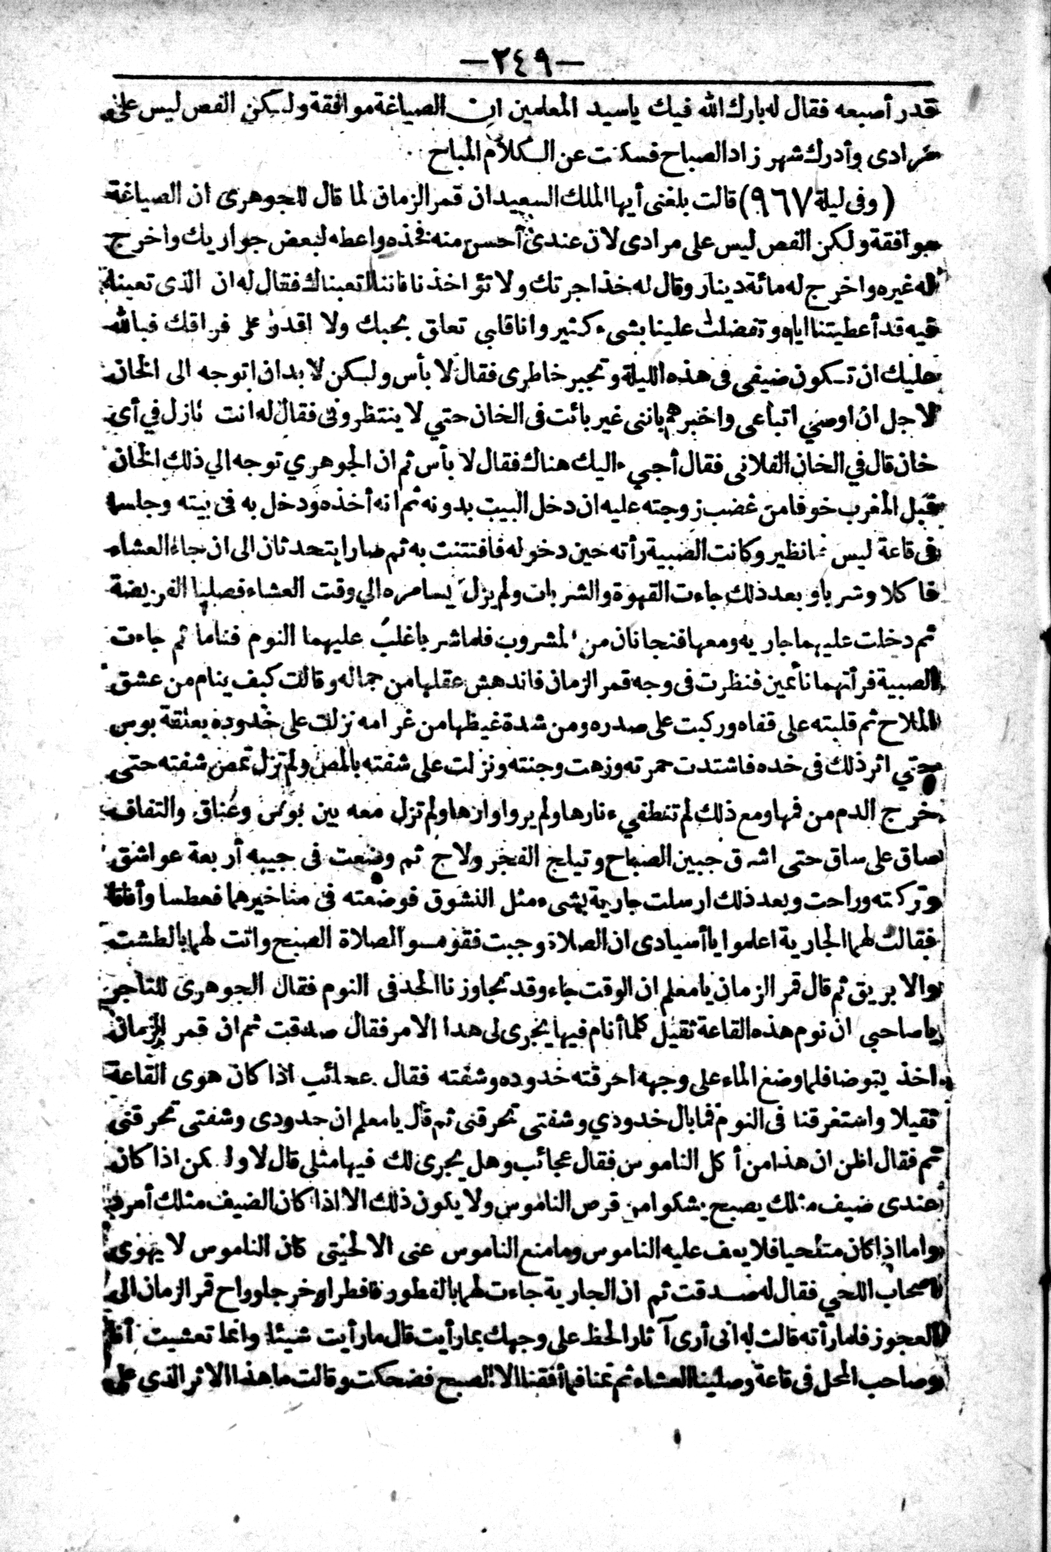 —٢٤٩—
قدر أصبعه فقال له بارك الله فيك ياسيد المعلمين ان الصياغة موافقة ولكن الفص ليس على
مرادى وأدرك شهر زاد الصباح فسكتت عن الكلام المباح
(وفى ليلة ٩٦٧) قالت بلغنى أيها الملك السعيد ان قمر الزمان لما قال للجوهرى ان الصياغة
موافقة ولكن الفص ليس على مرادى لان عندى أحسن منه فخذه واعطه لبعض جواريك واخرج
له غيره واخرج له مائة دينار وقال له خذ اجرتك ولا تؤاخذنا فاننا اتعبناك فقال له ان الذى تعبنا
فيه قد أعطيتنا اياه وتفضلت علينا بشىء كثير وانا قلبى تعلق بحبك ولا اقدر على فراقك فبالله
عليك ان تكون ضيفى فى هذه الليلة وتجبر خاطرى فقال لا بأس ولكن لا بد ان اتوجه الى الخان
لاجل ان اوصي اتباعى واخبرهم باننى غير بائت فى الخان حتي لا ينتظرونى فقال له انت نازل في أي
خان قال في الخان الفلانى فقال أجيء اليك هناك فقال لا بأس ثم ان الجوهري توجه الي ذلك الخان
قبل المغرب خوفا من غضب زوجته عليه ان دخل البيت بدونه ثم انه أخذه ودخل به فى بيته وجلسا
فى قاعة ليس لها نظير وكانت الصبية رأته حين دخوله فافتتنت به ثم صارا يتحدثان الى ان جاء العشاء
فاكلا وشربا وبعد ذلك جاءت القهوة والشربات ولم يزل يسامره الي وقت العشاء فصليا الفريضة
ثم دخلت عليهما جارية ومعها فنجانان من المشروب فلما شربا غلب عليهما النوم فناما ثم جاءت
الصبية فرأتهما نائمين فنظرت فى وجه قمر الزمان فاندهش عقلها من جماله وقالت كيف ينام من عشق
الملاح ثم قلبته على قفاه وركبت على صدره ومن شدة غيظها من غرامه نزلت على خدوده بعلقة بوس
حتي اثر ذلك فى خده فاشتدت حمرته وزهت وجنته ونزلت على شفته بالمص ولم تزل تمص شفته حتى
خرج الدم من فمها ومع ذلك لم تنطفيء نارها ولم يروا وارها ولم تزل معه بين بوس وعناق والتفاف
ساق على ساق حتى اشرق جبين الصباح وتبلج الفجر ولاح ثم وضعت فى جيبه أربعة عواشق
وتركته وراحت وبعد ذلك ارسلت جارية بشىء مثل النشوق فوضعته فى مناخيرهما فعطسا وأفاقا
فقالت لهما الجارية اعلموا يا أسيادى ان الصلاة وجبت فقوموا لصلاة الصبح واتت لهما بالطشت
والابريق ثم قال قمر الزمان يا معلم ان الوقت جاء وقد تجاوزنا الحد فى النوم فقال الجوهرى للتاجر
يا صاحبي ان نوم هذه القاعة ثقيل كلما أنام فيها يجرى لى هدا الامر فقال صدقت ثم ان قمر الزمان
اخذ يتوضا فلما وضع الماء على وجهه احرقته خدوده وشفته فقال عجائب اذا كان هوى القاعة
ثقيلا واستغرقنا فى النوم فما بال خدودي وشفتى تحرقنى ثم قال يا معلم ان خدودى وشفتى تحرقنى
ثم فقال اظن ان هذا من أكل الناموس فقال عجائب وهل يجرى لك فيها مثلى قال لا ولكن اذا كان
عندى ضيف مثلك يصبح يشكو من قرص الناموس ولا يكون ذلك الا اذا كان الضيف مثلك أمرد
واما اذا كان ملتحيا فلا يعف عليه الناموس وما منع الناموس عنى الا لحيتى كان الناموس لا يهوى
أصحاب اللحي فقال له صدقت ثم ان الجارية جاءت لهما بالفطور فافطرا وخرجا وراح قمر الزمان الى
العجوز فلما رأته قالت له انى أرى آثار الحظ على وجهك بما رأيت قال ما رأيت شيئا وانما تعشيت أنا
وصاحب المحل فى قاعة وصلينا العشاء ثم نمنا فما أفقنا الا الصبح فضحكت وقالت ما هذا الاثر الذي على